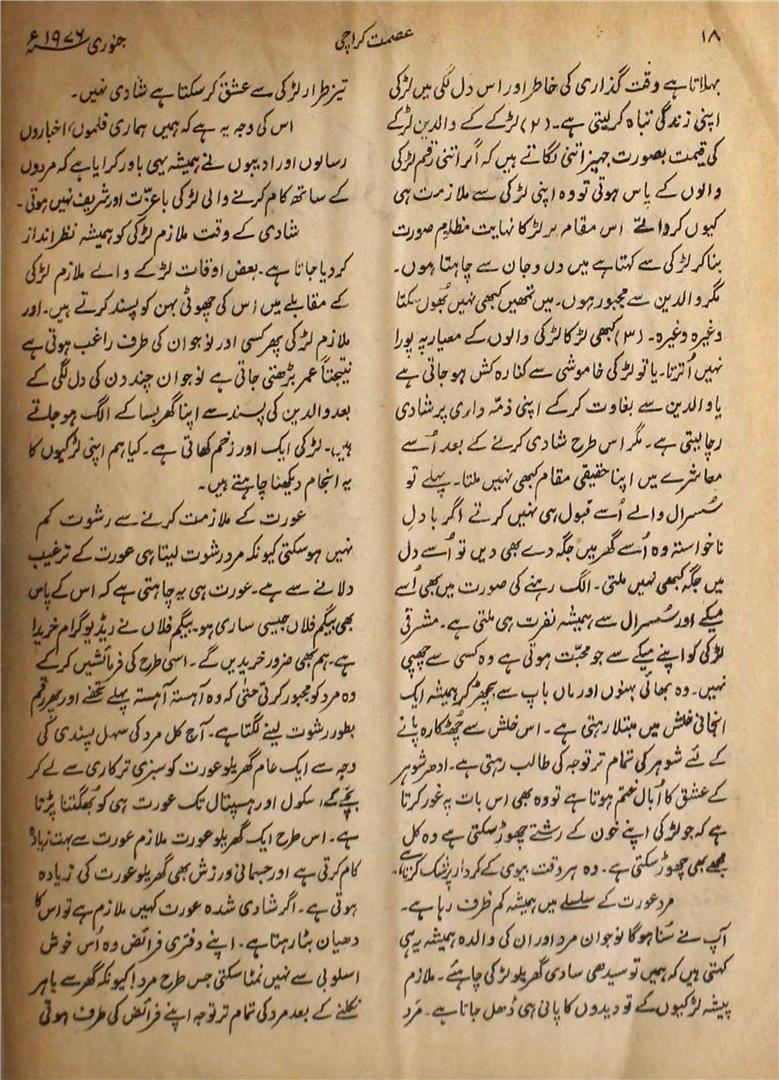 ۱۸
عصمت کراچی
جنوری سنہ ۱۹۷۶ء
بہلاتا ہے وقت گذاری کی خاطر اور اس دل لگی میں لڑکی
اپنی زندگی تباہ کر لیتی ہے۔ (۲) لڑکے کے والدین لڑکے
کی قیمت بصورت جہیز اتنی لگاتے ہیں کہ اگر اتنی رقم لڑکی
والوں کے پاس ہوتی تو وہ اپنی لڑکی سے ملازمت ہی
کیوں کرواتے اس مقام پر لڑکا نہایت مظلوم صورت
بنا کر لڑکی سے کہتا ہے میں دل و جان سے چاہتا ہوں۔
مگر والدین سے مجبور ہوں۔ میں تمھیں کبھی نہیں بھول سکتا
وغیرہ وغیرہ۔ (۳) کبھی لڑکا لڑکی والوں کے معیار پہ پورا
نہیں اُترتا۔ یا تو لڑکی خاموشی سے کنارہ کش ہو جاتی ہے
یا والدین سے بغاوت کر کے اپنی ذمّہ داری پر شادی
رچا لیتی ہے۔ مگر اس طرح شادی کرنے کے بعد اُسے
معاشرے میں اپنا حقیقی مقام کبھی نہیں ملتا۔ پہلے تو
سُسرال والے اُسے قبول ہی نہیں کرتے اگر با دلِ
ناخواستہ وہ اُسے گھر میں جگہ دے بھی دیں تو اُسے دل
میں جگہ کبھی نہیں ملتی۔ الگ رہنے کی صورت میں بھی اُسے
میکے اور سُسرال سے ہمیشہ نفرت ہی ملتی ہے۔ مشرقی
لڑکی کو اپنے میکے سے جو محبّت ہوتی ہے وہ کسی سے چھپی
نہیں۔ وہ بھائی بہنوں اور ماں باپ سے بچھڑ کر ہمیشہ ایک
انجانی خلش میں مبتلا رہتی ہے۔ اس خلش سے چُھٹکارہ پانے
کے لئے شوہر کی تمام تر توجہ کی طالب رہتی ہے۔ ادھر شوہر
کے عشق کا اُبال ختم ہوتا ہے تو وہ بھی اس بات پہ غور کرتا
ہے کہ جو لڑکی اپنے خون کے رشتے چھوڑ سکتی ہے وہ کل
مجھے بھی چھوڑ سکتی ہے۔ وہ ہر وقت بیوی کے کردار پر شک کرتا ہے۔
مرد عورت کے سلسلے میں ہمیشہ کم ظرف رہا ہے۔
آپ نے سُنا ہوگا نوجوان مرد اور ان کی والدہ ہمیشہ یہ ہی
کہتی ہیں کہ ہمیں تو سیدھی سادی گھریلو لڑکی چاہئے۔ ملازم
پیشہ لڑکیوں کے تو دیدوں کا پانی ہی ڈھل جاتا ہے۔ مَرد
تیز طرار لڑکی سے عشق کر سکتا ہے شادی نہیں۔
اس کی وجہ یہ ہے کہ ہمیں ہماری فلموں، اخباروں
رسالوں اور ادیبوں نے ہمیشہ یہی باور کرایا ہے کہ مردوں
کے ساتھ کام کرنے والی لڑکی باعزّت اور شریف نہیں ہوتی۔
شادی کے وقت ملازم لڑکی کو ہمیشہ نظر انداز
کر دیا جاتا ہے۔ بعض اوقات لڑکے والے ملازم لڑکی
کے مقابلے میں اس کی چھوٹی بہن کو پسند کرتے ہیں۔ اور
ملازم لڑکی پھر کسی اور نوجوان کی طرف راغب ہوتی ہے
نتیجتاً عمر بڑھتی جاتی ہے نوجوان چند دن کی دل لگی کے
بعد والدین کی پسند سے اپنا گھر بسا کے الگ ہو جاتے
ہیں۔ لڑکی ایک اور زخم کھاتی ہے۔ کیا ہم اپنی لڑکیوں کا
یہ انجام دیکھنا چاہتے ہیں۔
عورت کے ملازمت کرنے سے رشوت کم
نہیں ہو سکتی کیونکہ مرد رشوت لیتا ہی عورت کے ترغیب
دلانے سے ہے۔ عورت ہی یہ چاہتی ہے کہ اس کے پاس
بھی بیگم فلاں جیسی ساری ہو۔ بیگم فلاں نے ریڈیو گرام خریدا
ہے۔ ہم بھی ضرور خریدیں گے۔ اسی طرح کی فرمائشیں کر کے
وہ مرد کو مجبور کرتی حتیٰ کہ وہ آہستہ آہستہ پہلے تحفے اور پھر رقم
بطور رشوت لینے لگتا ہے۔ آج کل مرد کی سہل پسندی کی
وجہ سے ایک عام گھریلو عورت کو سبزی ترکاری سے لے کر
بچّے کے اسکول اور ہسپتال تک عورت ہی کو بھگتنا پڑتا
ہے۔ اس طرح ایک گھریلو عورت ملازم عورت سے بہت زیادہ
کام کرتی ہے اور جسمانی ورزش بھی گھریلو عورت کی زیادہ
ہوتی ہے۔ اگر شادی شدہ عورت کہیں ملازم ہے تو اس کا
دھیان بٹا رہتا ہے۔ اپنے دفتری فرائض وہ اُس خوش
اسلوبی سے نہیں نمٹا سکتی جس طرح مرد! کیونکہ گھر سے باہر
نکلنے کے بعد مرد کی تمام تر توجہ اپنے فرائض کی طرف ہوتی